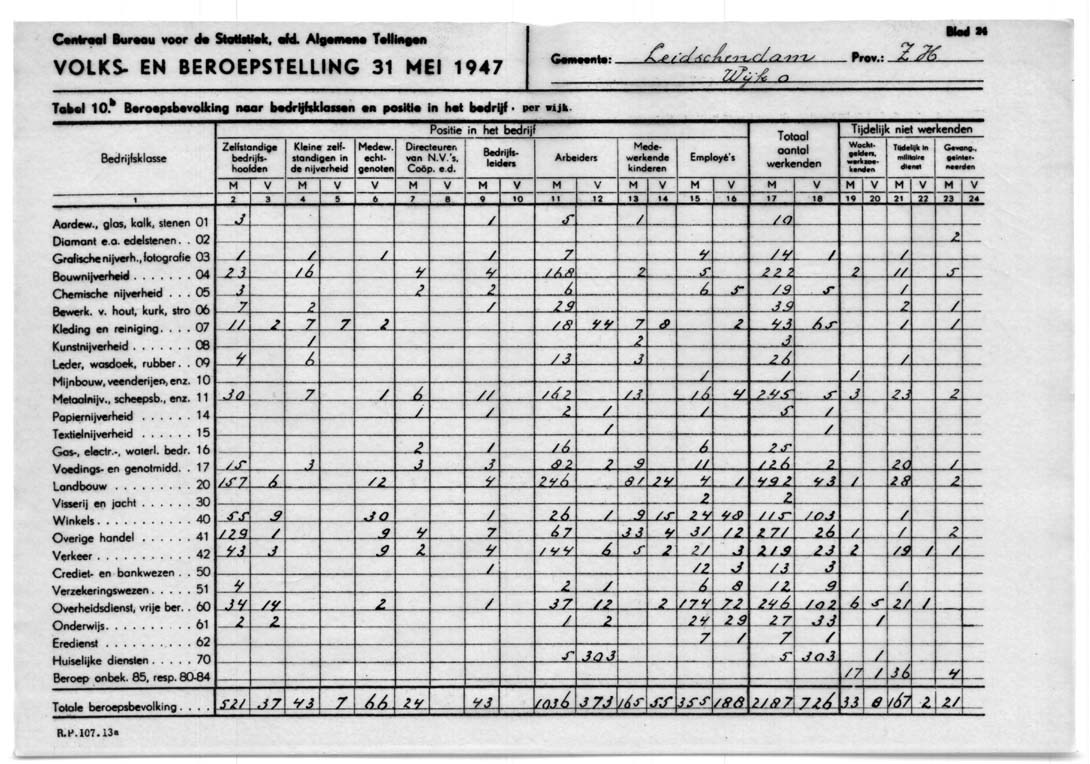 Centraal Bureau voor de Statistiek, afd. Algemene Tellingen
Blad 24
VOLKS- EN BEROEPSTELLING 31 MEI 1947
Gemeente: Leidschendam Prov.: Z H
Wijk o
Tabel 10.b Beroepsbevolking naar bedrijfsklassen en positie in het bedrijf. per wijk.
Bedrijfsklasse | Positie in het bedrijf | Totaal aantal werkenden | Tijdelijk niet werkenden
Zelfstandige bedrijfshoofden | Kleine zelfstandigen in de nijverheid | Medew. echtgenoten | Directeuren van N.V.'s, Coöp. e.d. | Bedrijfsleiders | Arbeiders | Medewerkende kinderen | Employé's | Wachtgelders, werkzoekenden | Tijdelijk in militaire dienst | Gevang., geïnterneerden
M V M V V M V M V M V M V M V M V M V M V M V
1 2 3 4 5 6 7 8 9 10 11 12 13 14 15 16 17 18 19 20 21 22 23 24
Aardew., glas, kalk, stenen 01 3 1 5 1 10
Diamant e.a. edelstenen. . 02 2
Grafische nijverh., fotografie 03 1 1 1 1 7 4 14 1 1
Bouwnijverheid . . . . . . . 04 23 16 4 4 168 2 5 222 2 11 5
Chemische nijverheid . . . 05 3 2 2 6 6 5 19 5 1
Bewerk. v. hout, kurk, stro 06 7 2 1 29 39 2 1
Kleding en reiniging. . . . 07 11 2 7 7 2 18 44 7 8 2 43 65 1 1
Kunstnijverheid . . . . . . 08 1 2 3
Leder, wasdoek, rubber. . 09 4 6 13 3 26 1
Mijnbouw, veenderijen, enz. 10 1 1 1
Metaalnijv., scheepsb., enz. 11 30 7 1 6 11 162 13 16 4 245 5 3 23 2
Papiernijverheid . . . . . . 14 1 1 2 1 1 5 1
Textielnijverheid . . . . . . 15 1 1
Gas-, electr.-, waterl. bedr. 16 2 1 16 6 25
Voedings- en genotmidd. . 17 15 3 3 3 82 2 9 11 126 2 20 1
Landbouw . . . . . . . . . 20 157 6 12 4 246 81 24 4 1 492 43 1 28 2
Visserij en jacht . . . . . . 30 2 2
Winkels. . . . . . . . . . . 40 55 9 30 1 26 1 9 15 24 48 115 103 1
Overige handel . . . . . . 41 129 1 9 4 7 67 33 4 31 12 271 26 1 1 2
Verkeer . . . . . . . . . . 42 43 3 9 2 4 144 6 5 2 21 3 219 23 2 19 1 1
Crediet- en bankwezen . . 50 1 12 3 13 3
Verzekeringswezen. . . . . 51 4 2 1 6 8 12 9 1
Overheidsdienst, vrije ber. . 60 34 14 2 1 37 12 2 174 72 246 102 6 5 21 1
Onderwijs. . . . . . . . . . 61 2 2 1 2 24 29 27 33 1
Eredienst . . . . . . . . . 62 7 1 7 1
Huiselijke diensten . . . . . 70 5 303 5 303 1
Beroep onbek. 85, resp. 80-84 17 1 36 4
Totale beroepsbevolking . . . . 521 37 43 7 66 24 43 1036 373 165 55 355 188 2187 726 33 8 167 2 21
R.P.107.13a